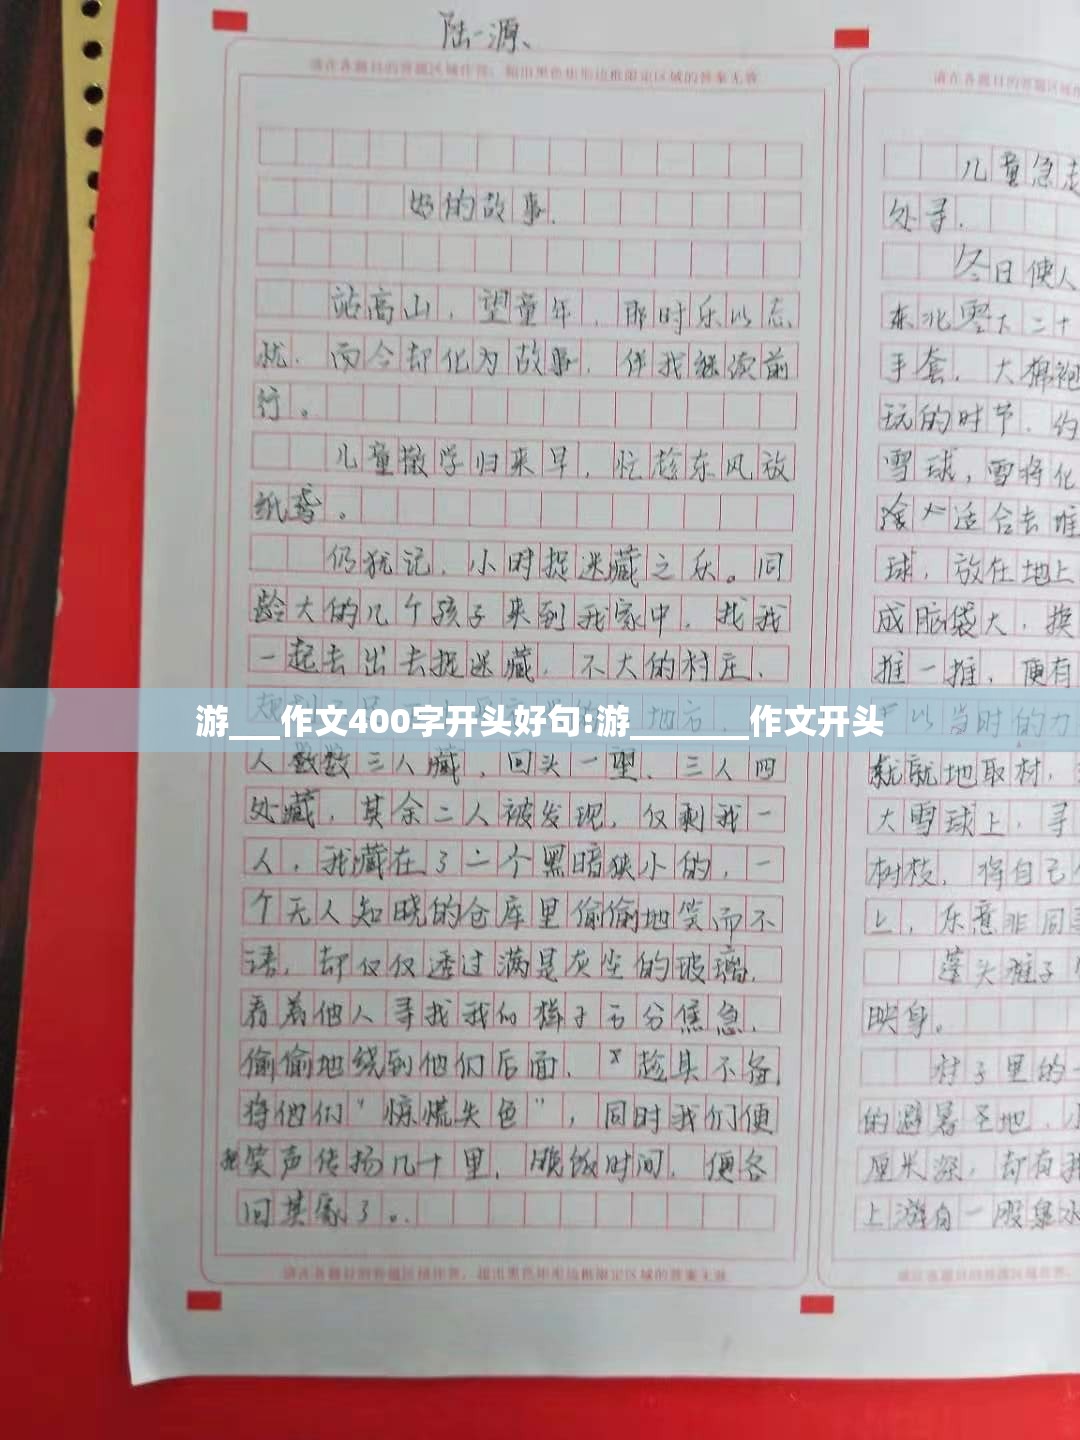 陆一源、
请在各题目的答题区域作答，超出黑色矩形边框限定区域的答案无效
好的故事.
站高山，望童年，那时乐以忘
忧，而今却化为故事，伴我继续前
行。
儿童散学归来早，忙趁东风放
纸鸢。
仍犹记，小时捉迷藏之乐。同
龄大的几个孩子来到我家中，找我
一起去出去捉迷藏，不大的村庄，
地方，
游___作文400字开头好句:游_______作文开头
人数数三人藏，回头一望，三人四
处藏，其余二人被发现，仅剩我一
人，我藏在了一个黑暗狭小的，一
个无人知晓的仓库里偷偷地笑而不
语，却仅仅透过满是灰尘的玻璃，
看着他人寻找我的样子万分焦急，
偷偷地绕到他们后面，趁其不备，
将他们“惊慌失色”，同时我们便
把笑声传扬几十里，晚饭时间，便各
回其家了。
请在各题目的答题区域作答，超出黑色矩形边框限定区域的答案无效
请在各题目的答题区域作
儿童急走
处寻.
冬日使人
东北零下二十
手套，大棉袍
玩的时节，约
雪球，雪将化
适合去堆
球，放在地上
成脑袋大，换
推一推，便有
以当时的力
就就地取材，
大雪球上，寻
树枝，将自己
上，乐意非同
蓬头稚子
映身。
村子里的一
的避暑圣地，
厘米深，却有我
上游有一股泉水